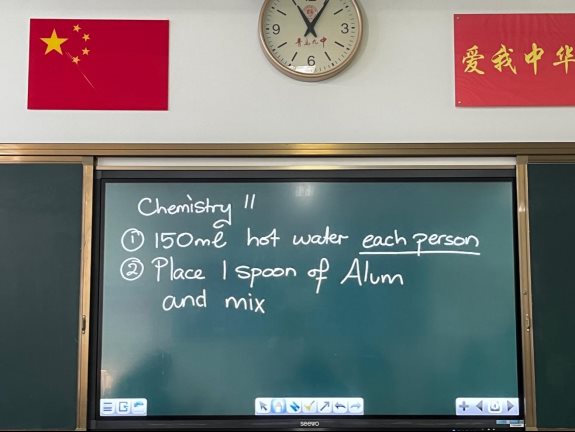 9
3
6
青岛九中
爱我中华
Chemistry 11
① 150ml hot water each person
② Place 1 spoon of Alum
and mix
seewo